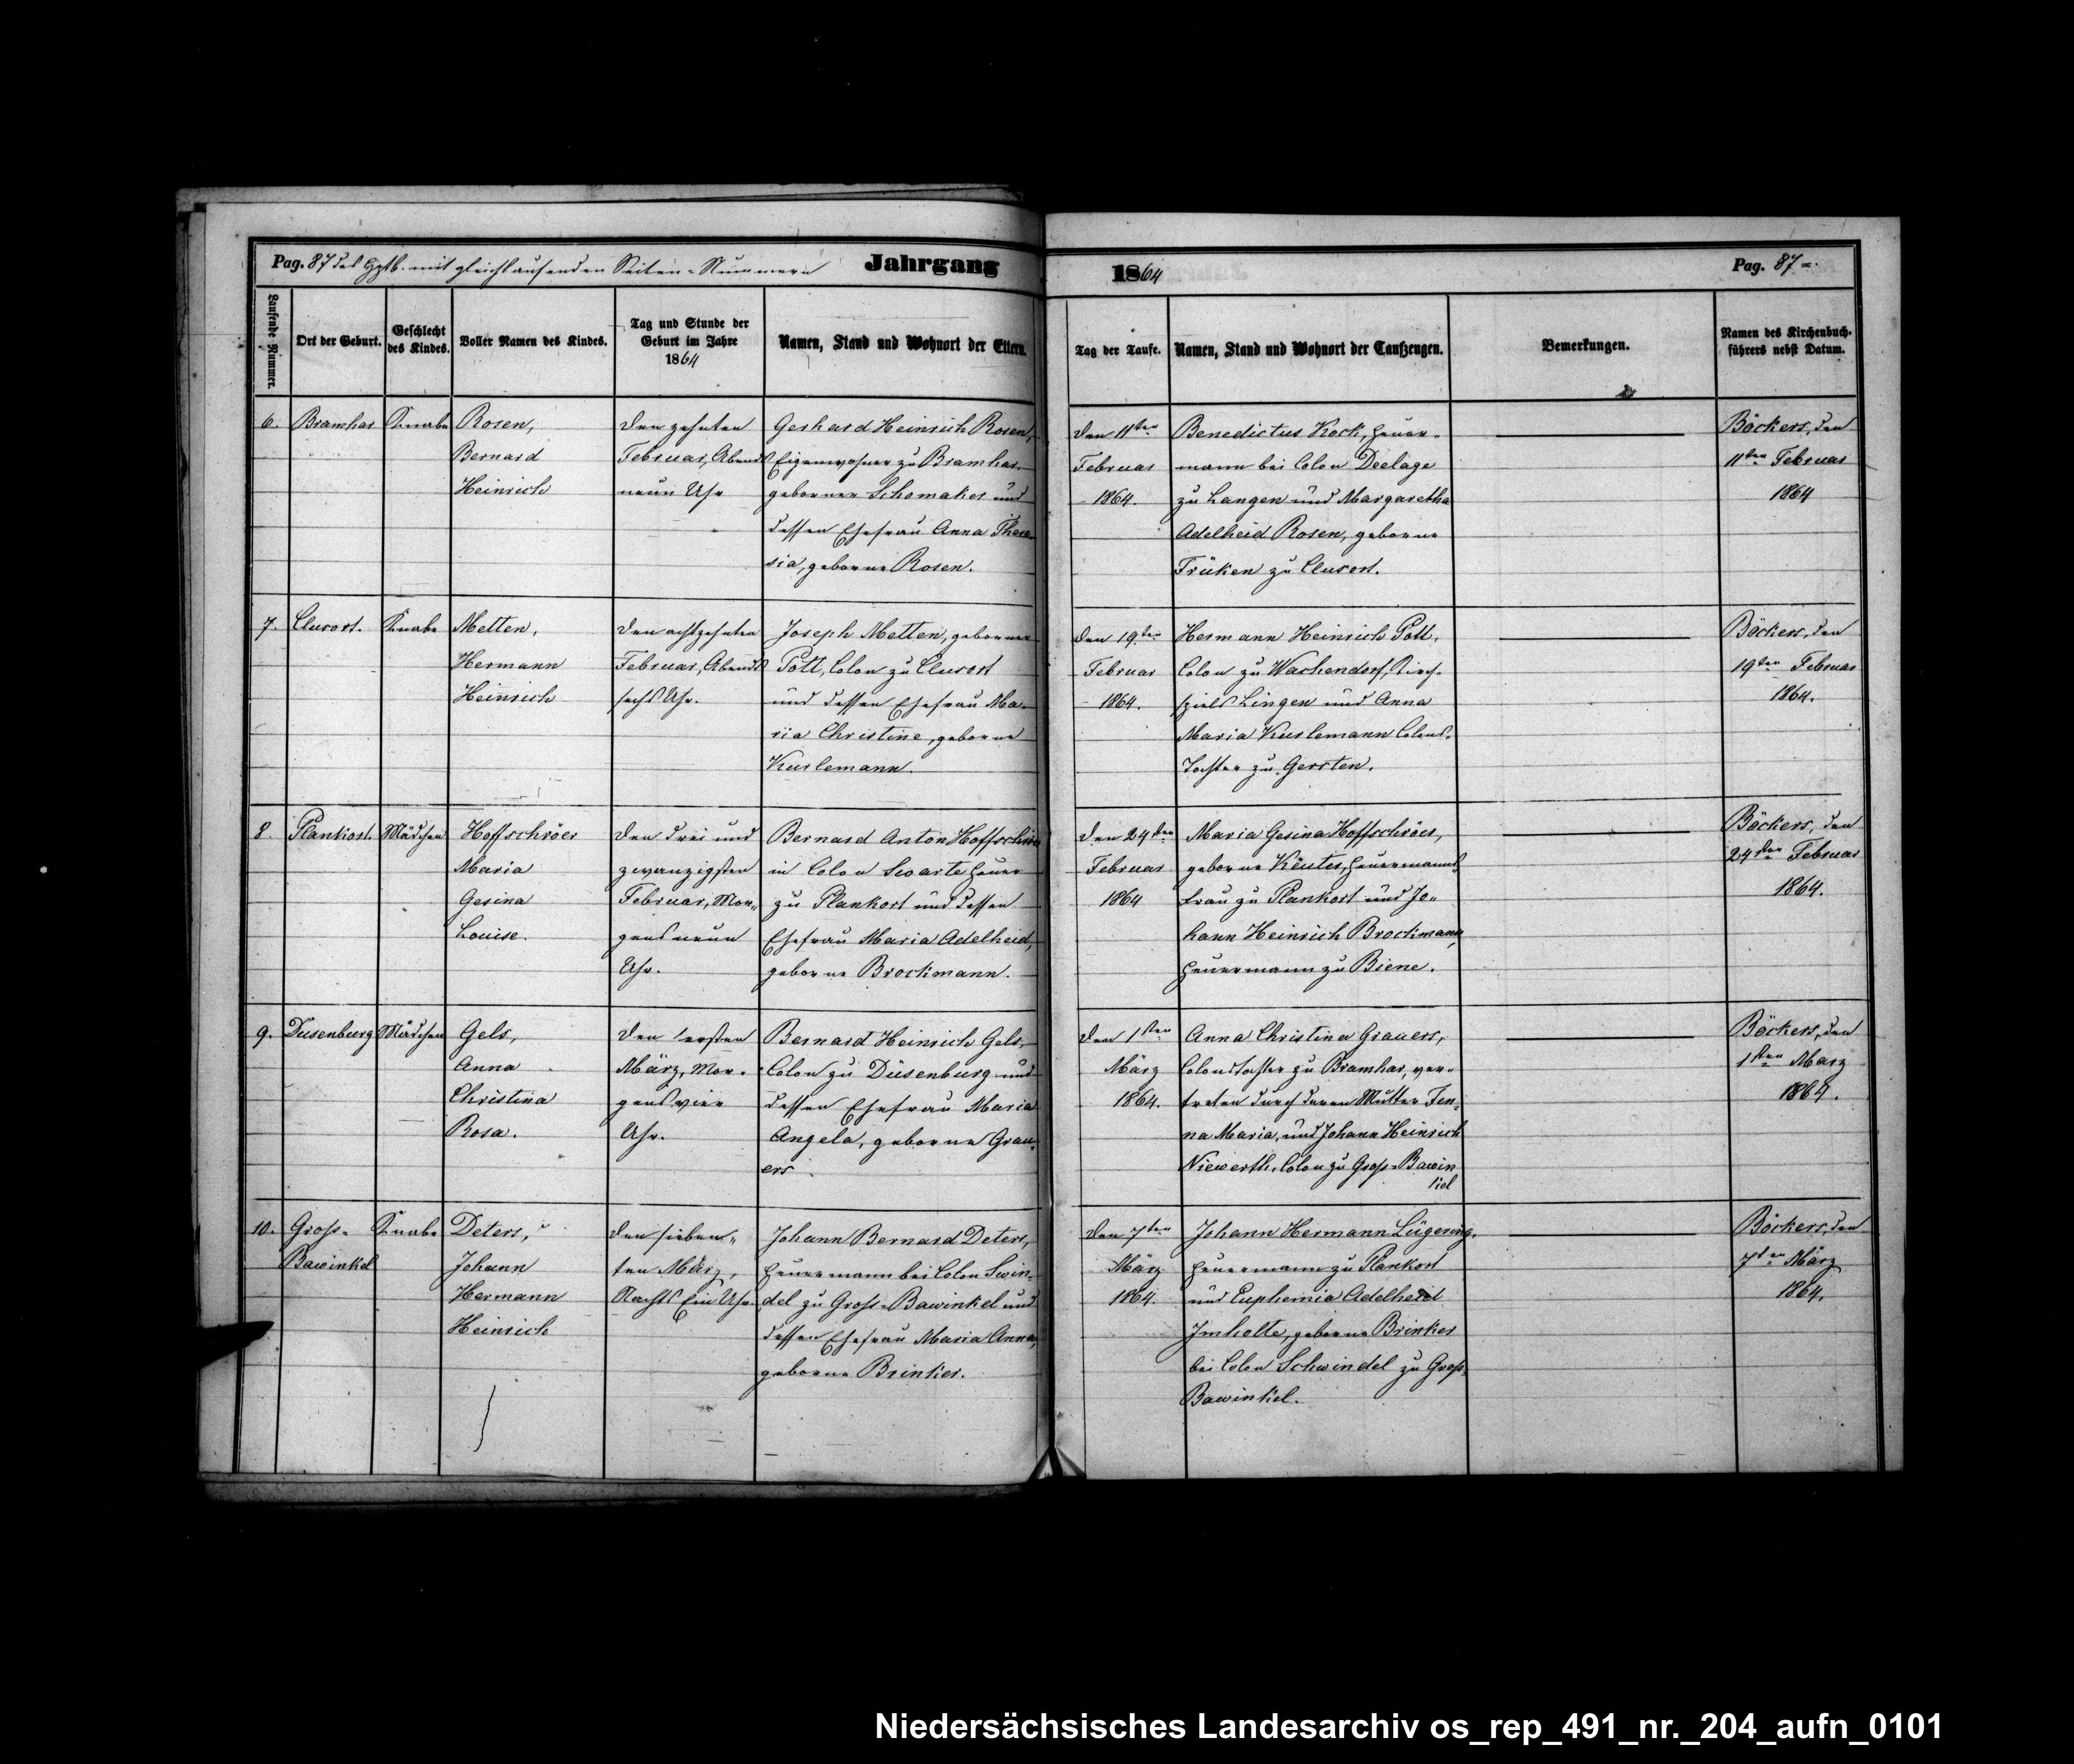 Pag. 87 des Hptb. mit gleichlaufenden Seiten-Nummern
Jahrgang
1864
Pag. 87
Laufende Nummer.
Ort der Geburt.
Geschlecht
des Kindes.
Voller Namen des Kindes.
Tag und Stunde der
Geburt im Jahre
1864
Namen, Stand und Wohnort der Eltern.
Tag der Taufe.
Namen, Stand und Wohnort der Taufzeugen.
Bemerkungen.
Namen des Kirchenbuch-
führers nebst Datum.
6.
Bramhar
Knabe
Rosen,
Bernard
Heinrich
Den zehnten
Februar, Abends
neun Uhr
Gerhard Heinrich Rosen,
Eigenwohner zu Bramhar
geborner Schomaker und
dessen Ehefrau Anna There-
sia, geborne Rosen.
Den 11ten
Februar
1864.
Benedictus Kock, Heuer-
mann bei Colon Deelage
zu Langen und Margaretha
Adelheid Rosen, geborne
Früken zu Clusort.
Böckers, den
11ten Februar
1864
7.
Clusort.
Knabe
Metten,
Hermann
Heinrich
Den achtzehnten
Februar, Abends
sechs Uhr.
Joseph Metten, geborner
Pott, Colon zu Clusort
und dessen Ehefrau Ma-
ria Christine, geborne
Kurlemann.
Den 19ten
Februar
1864.
Hermann Heinrich Pott,
Colon zu Wachendorf, Kirch-
spiels Lingen und Anna
Maria Kurlemann Colons-
Tochter zu Gersten.
Böckers, den
19ten Februar
1864.
8.
Plankort.
Mädchen
Hoffschröer
Maria
Gesina
Louise.
Den drei und
zwanzigsten
Februar, Mor-
gens neun
Uhr.
Bernard Anton Hoffschröer
in Colon Swarte Heuer
zu Plankort und dessen
Ehefrau Maria Adelheid,
geborne Brockmann.
Den 24sten
Februar
1864
Maria Gesina Hoffschröer,
geborne Keuter, Heuermanns-
frau zu Plankort und Jo-
hann Heinrich Brockmann,
Heuermann zu Biene.
Böckers, den
24sten Februar
1864.
9.
Duisenburg
Mädchen
Gels,
Anna
Christina
Rosa.
Den ersten
März, Mor-
gens vier
Uhr.
Bernard Heinrich Gels,
Colon zu Düsenburg und
dessen Ehefrau Maria
Angela, geborne Grau-
ers
Den 1sten
März
1864.
Anna Christina Grauers,
Colonstochter zu Bramhar, ver-
treten durch deren Mutter Fen-
na Maria, und Johann Heinrich
Niewerth, Colon zu Groß-Bawin
kel
Böckers, den
1sten März
1864.
10.
Groß-
Bawinkel
Knabe
Deters,
Johann
Hermann
Heinrich
Den sieben-
ten März,
Nachts Ein Uhr.
Johann Bernard Deters,
Heuermann bei Colon Swin-
del zu Groß-Bawinkel und
dessen Ehefrau Maria Anna,
geborne Brinker.
Den 7ten
März
1864.
Johann Hermann Lügering,
Heuermann zu Plankort
und Euphemia Adelheid
Imholte, geborne Brinker
bei Colon Schwindel zu Groß-
Bawinkel.
Böckers, den
7ten März
1864.
Niedersächsisches Landesarchiv os_rep_491_nr._204_aufn_0101